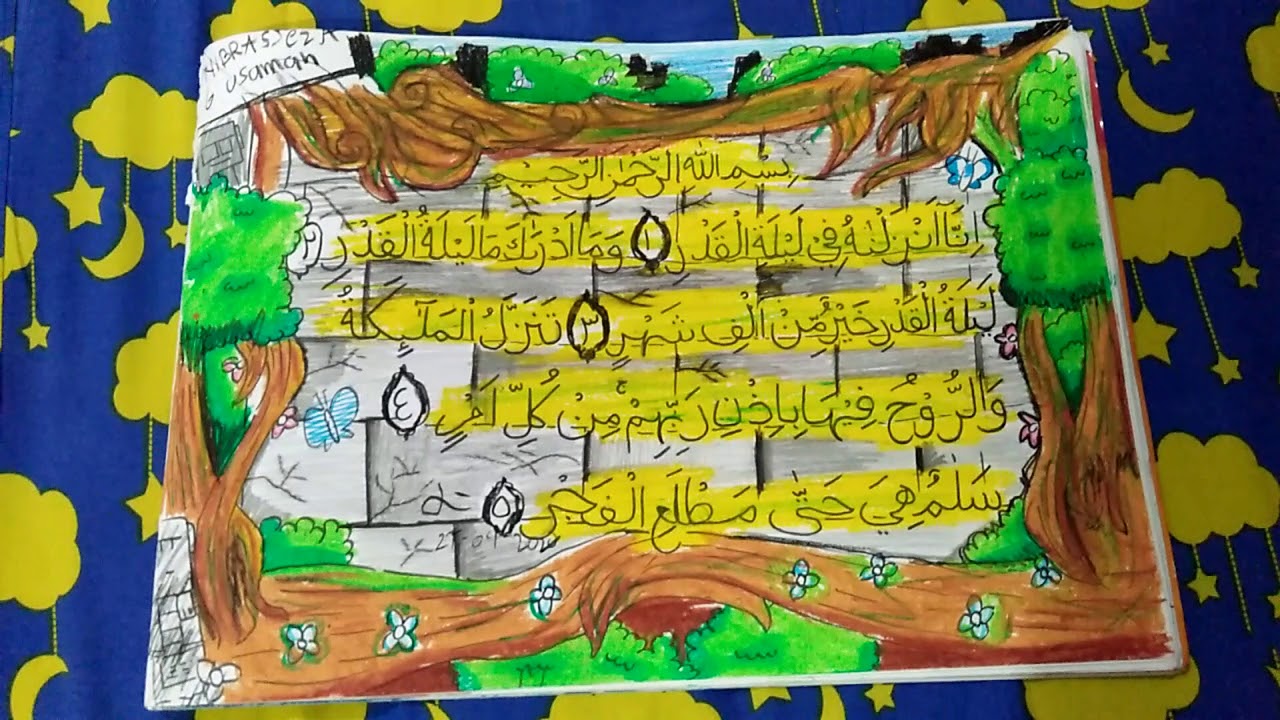 NIBRAS JEZA
6 usamah
بِسْمِ اللهِ الرَّحْمٰنِ الرَّحِيْمِ
اِنَّآ اَنْزَلْنٰهُ فِيْ لَيْلَةِ الْقَدْرِ ١ وَمَآ اَدْرٰىكَ مَا لَيْلَةُ الْقَدْرِ ٢
لَيْلَةُ الْقَدْرِ خَيْرٌ مِّنْ اَلْفِ شَهْرٍ ٣ تَنَزَّلُ الْمَلٰٓئِكَةُ
وَالرُّوْحُ فِيْهَا بِاِذْنِ رَبِّهِمْ مِّنْ كُلِّ اَمْرٍ ٤
سَلٰمٌ هِيَ حَتّٰى مَطْلَعِ الْفَجْرِ ٥